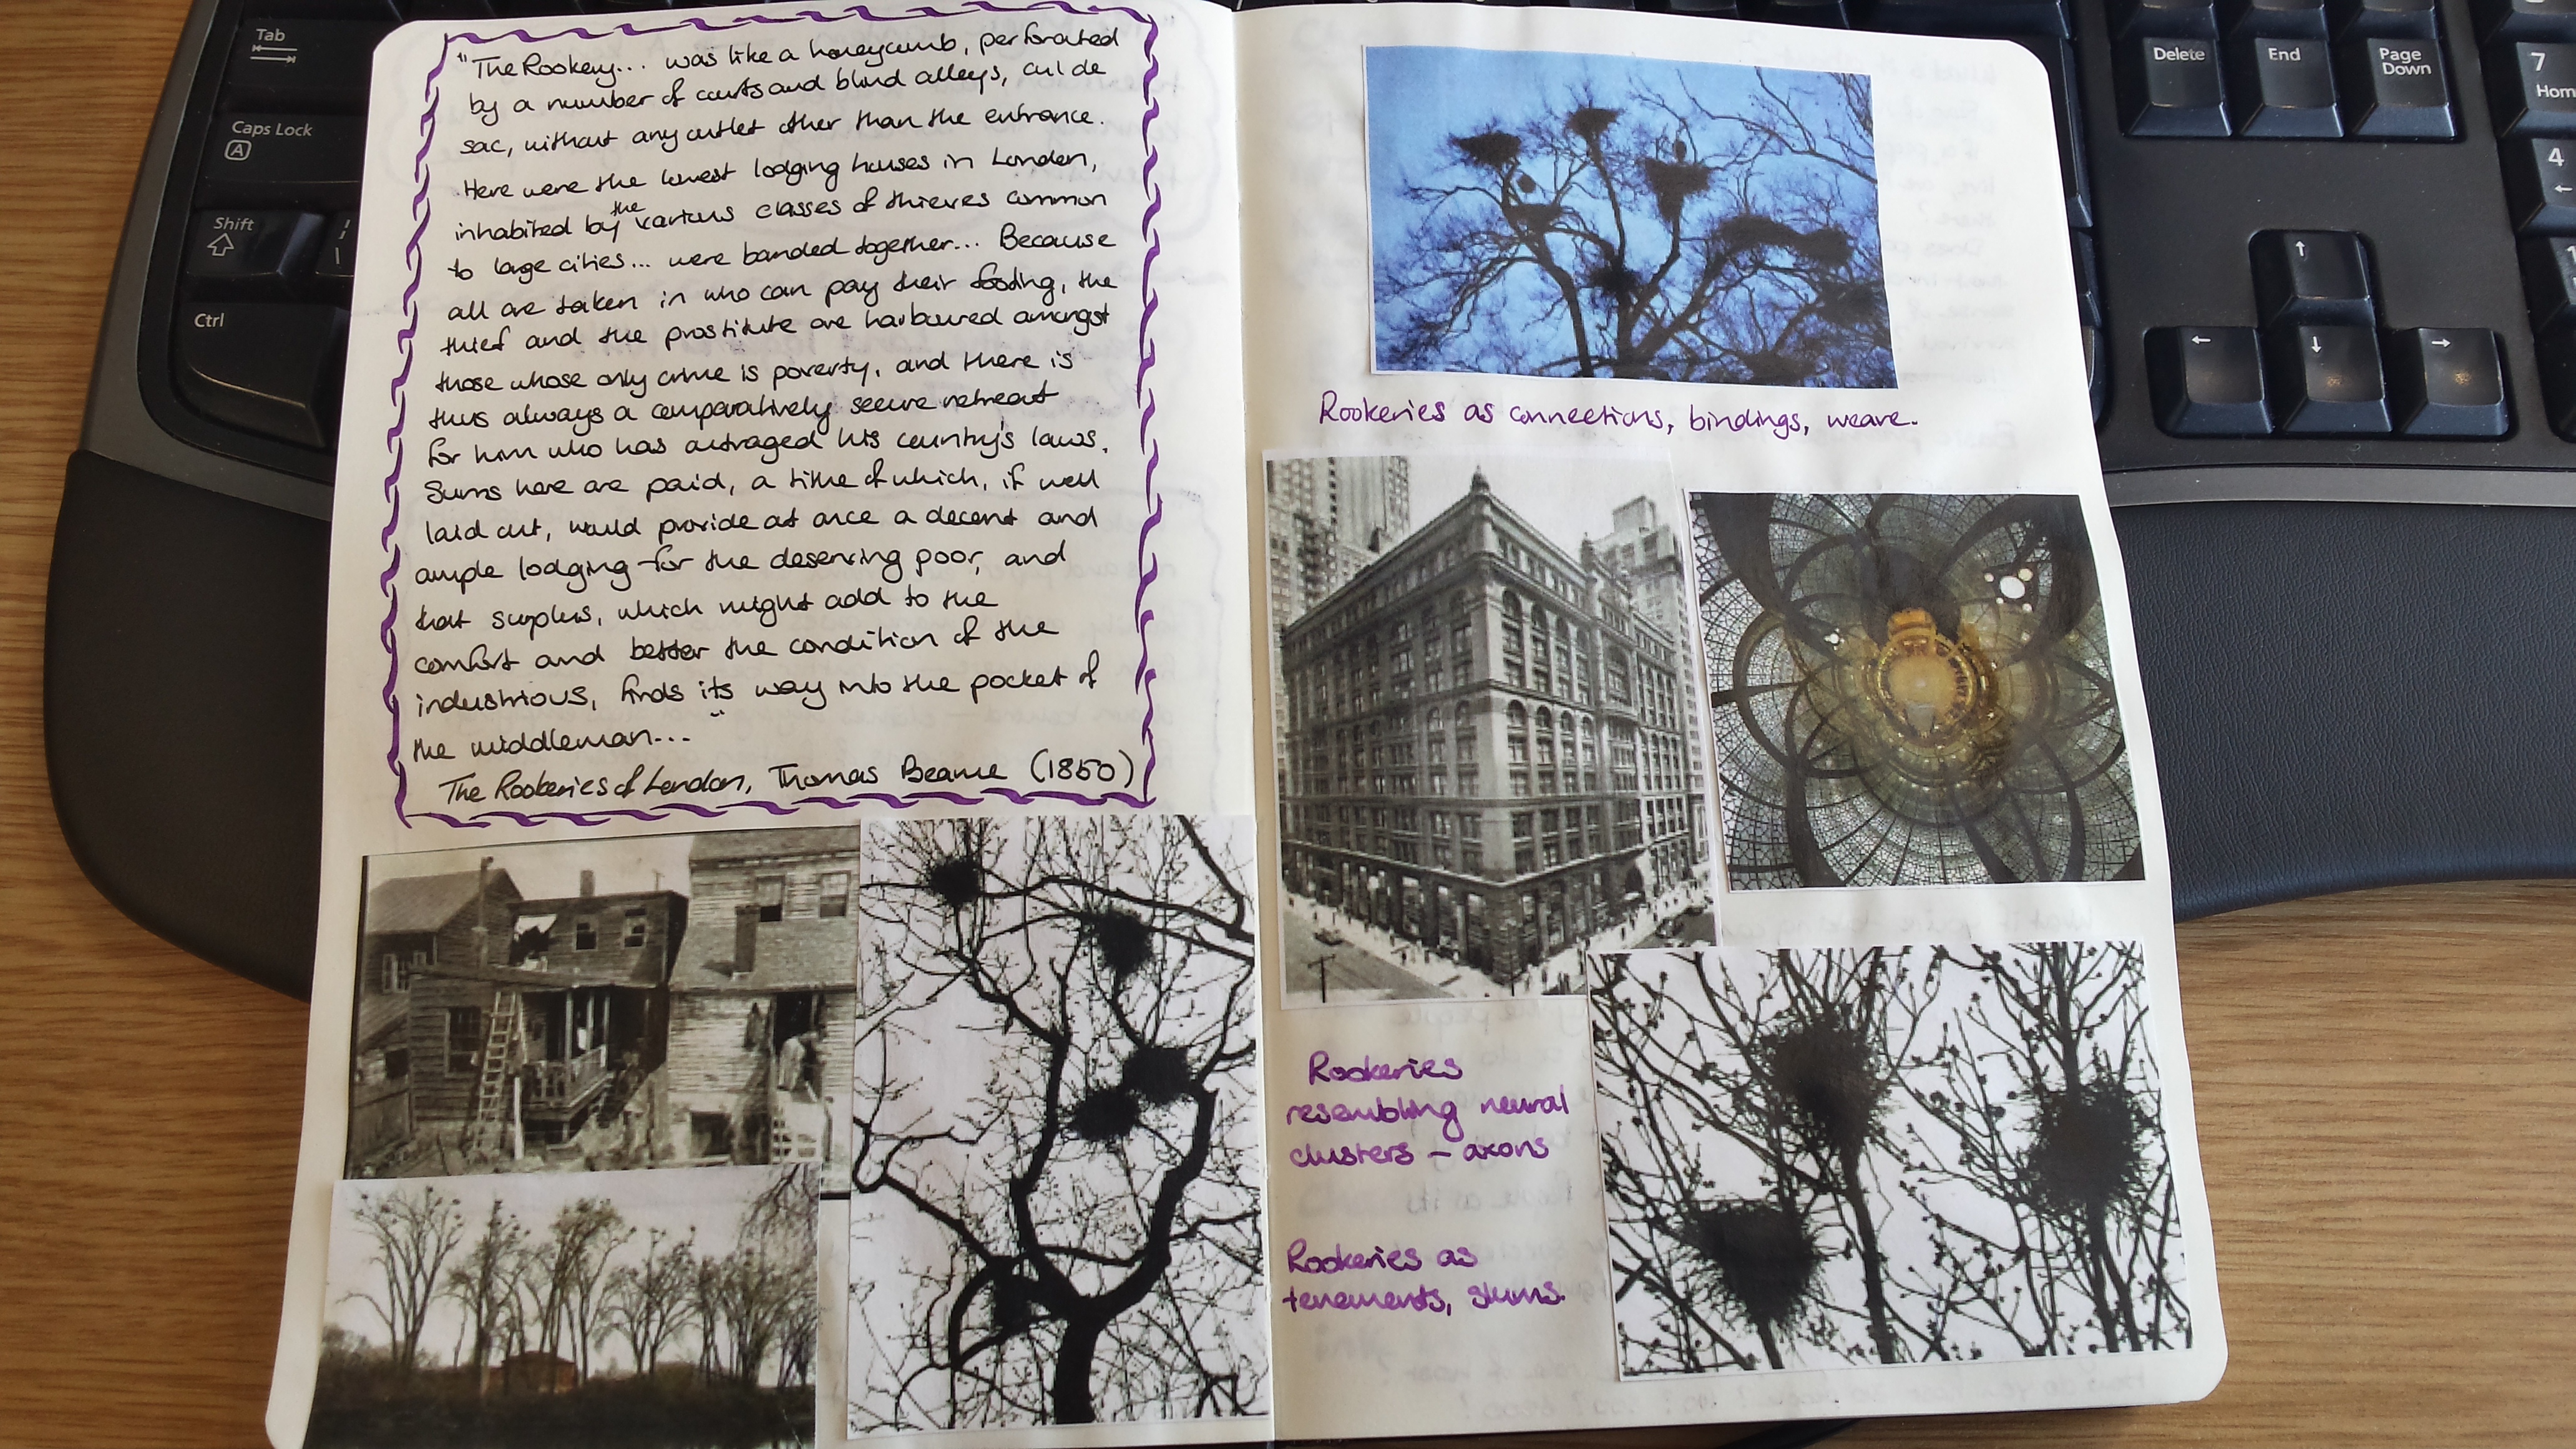 "The Rookery... was like a honeycomb, perforated
by a number of courts and blind alleys, cul de
sac, without any outlet other than the entrance.
Here were the lowest lodging houses in London,
inhabited by the various classes of thieves common
to large cities... were banded together... Because
all are taken in who can pay their footing, the
thief and the prostitute are harboured amongst
those whose only crime is poverty, and there is
thus always a comparatively secure retreat
for him who has outraged his country's laws.
Sums here are paid, a tithe of which, if well
laid out, would provide at once a decent and
ample lodging for the deserving poor, and
that surplus, which might add to the
comfort and better the condition of the
industrious, finds its way into the pocket of
the middleman..."
The Rookeries of London, Thomas Beame (1850)
Rookeries as connections, bindings, weave.
Rookeries
resembling neural
clusters – axons
Rookeries as
tenements, slums.
Tab
Caps Lock
A
Shift
Ctrl
Delete
End
Page
Down
7
Hom
4